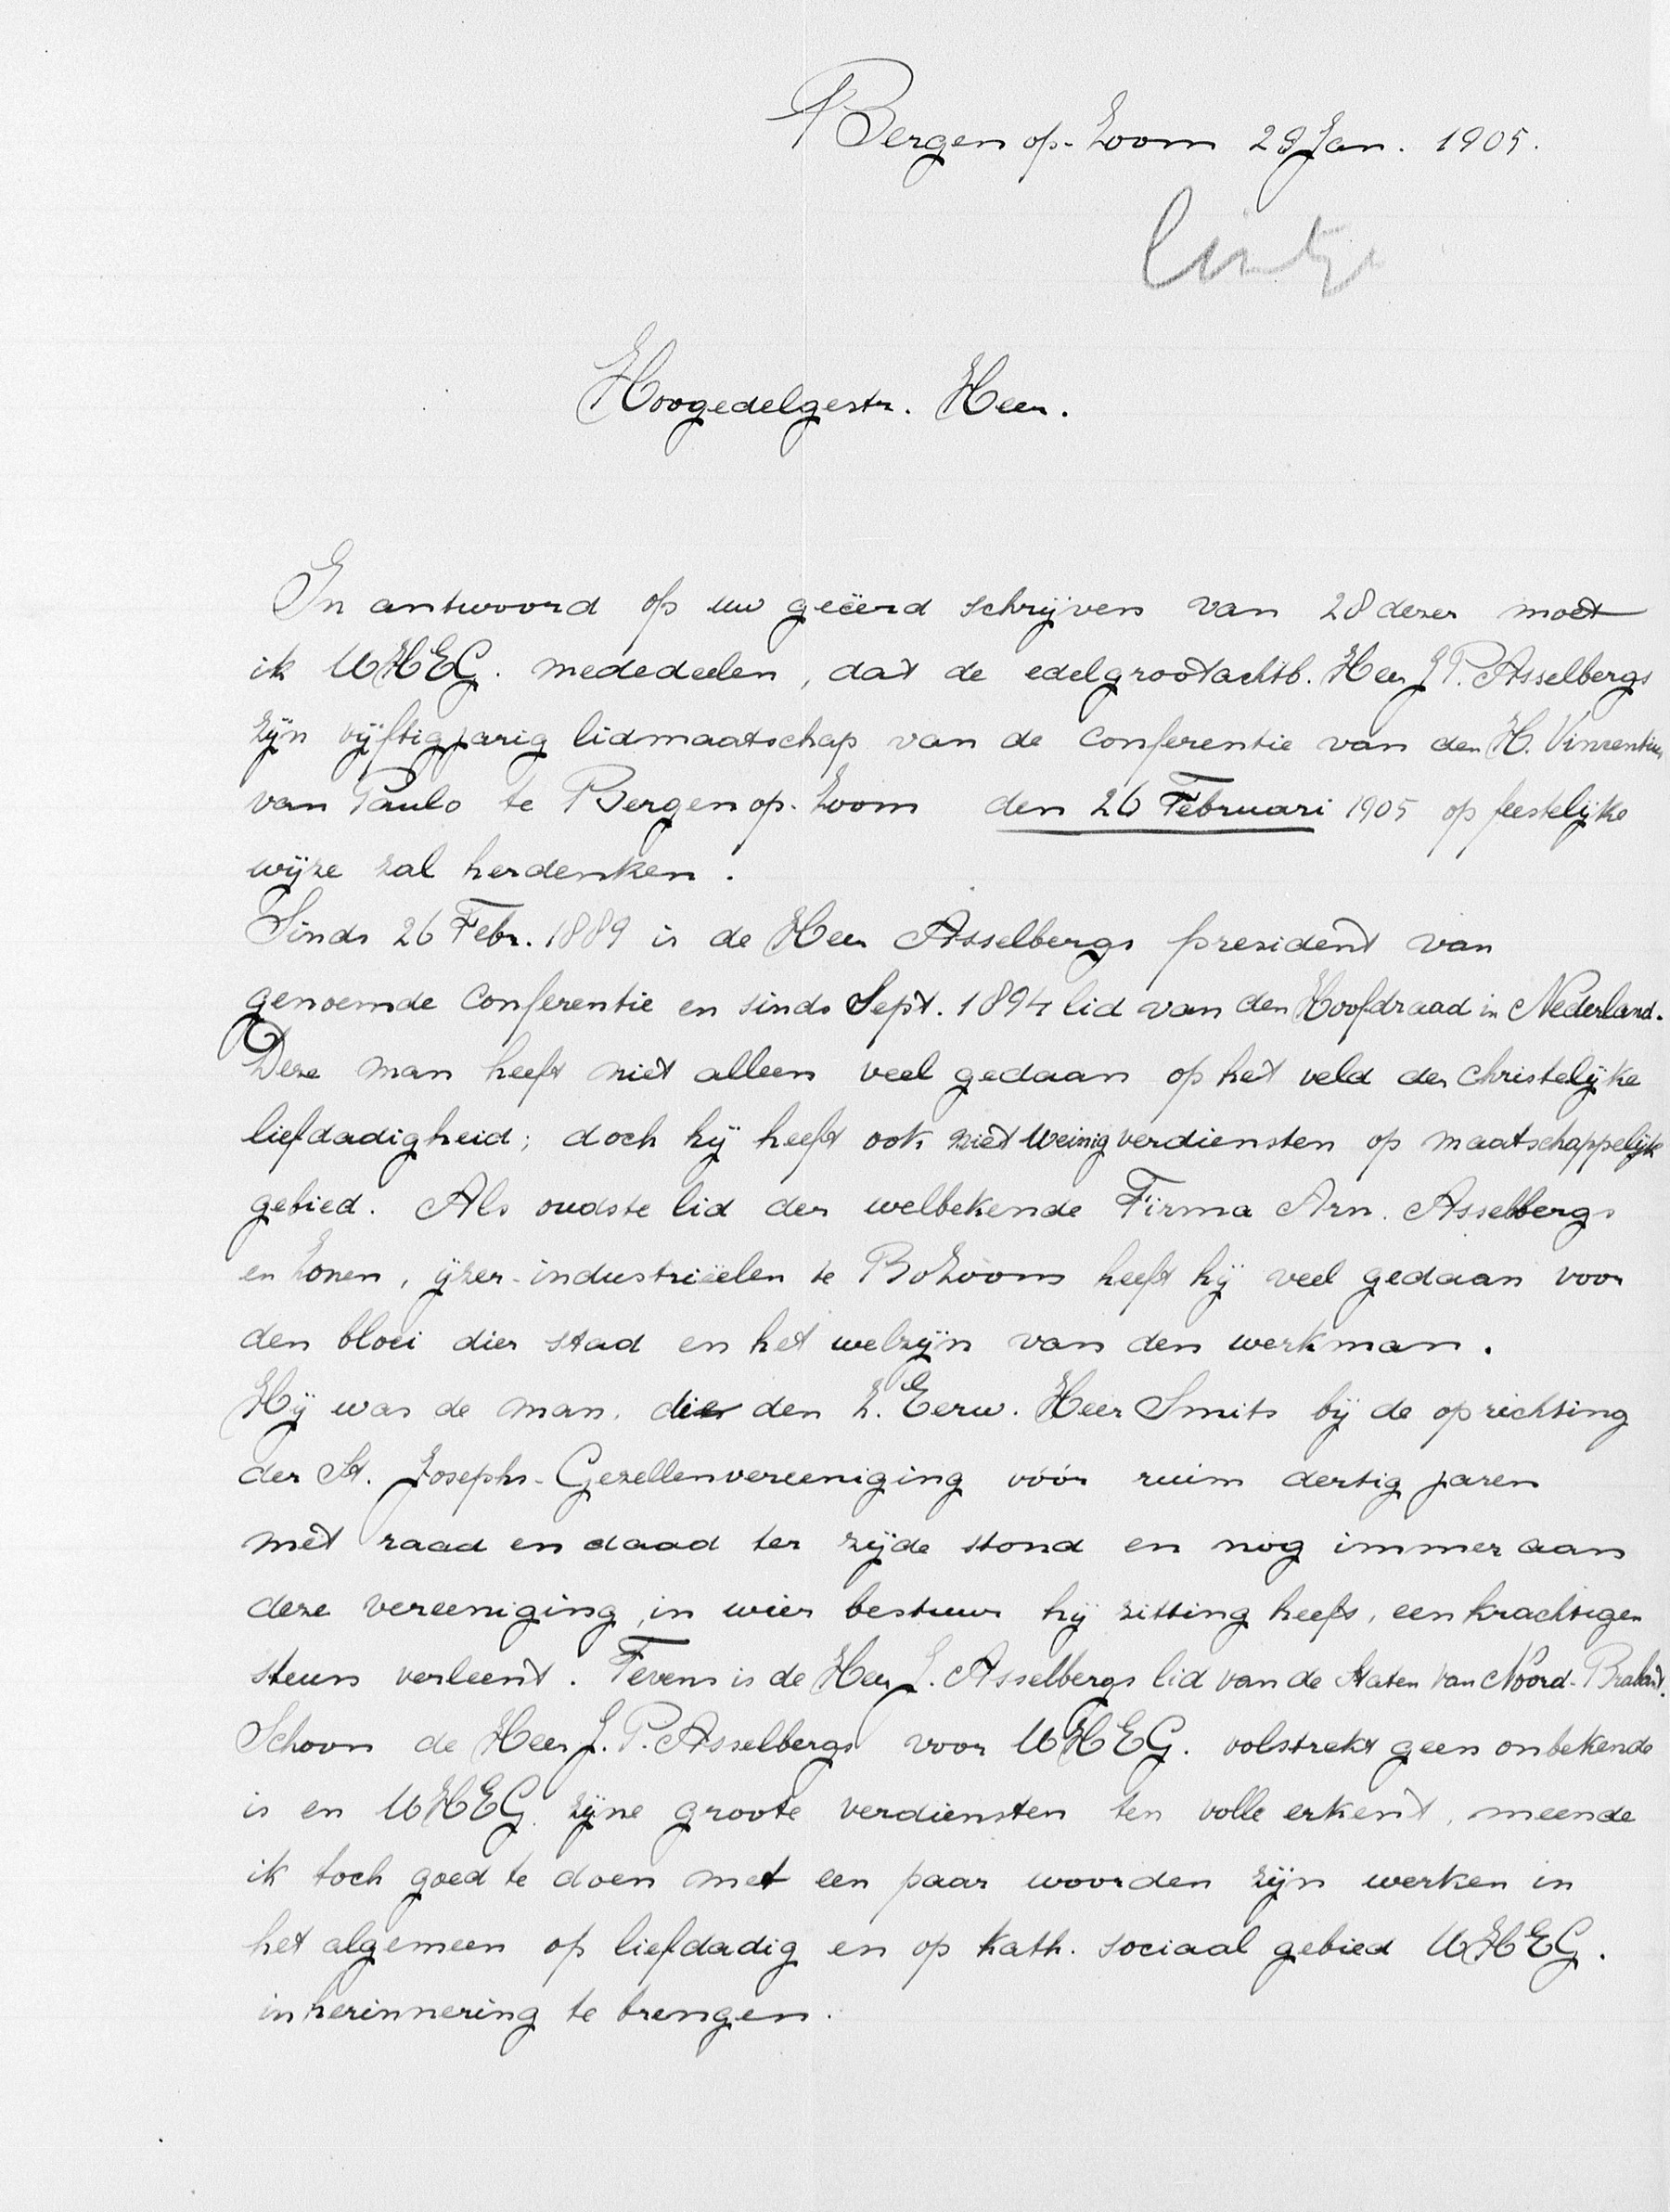 Bergen op-Zoom 29 Jan. 1905.
lintje
Hoogedelgestr. Heer.
In antwoord op uw geëerd schrijven van 28 dezer moet
ik UHEG. mededeelen, dat de edelgrootachtb. Heer J P. Asselbergs
zijn vijftigjarig lidmaatschap van de conferentie van den H. Vinzentius
van Paulo te Bergen op-Zoom den 26 Februari 1905 op feestelijke
wijze zal herdenken.
Sinds 26 Febr. 1889 is de Heer Asselbergs president van
genoemde conferentie en sinds Sept. 1894 lid van den Hoofdraad in Nederland.
Deze man heeft niet alleen veel gedaan op het veld der christelijke
liefdadigheid; doch hij heeft ook niet weinig verdiensten op maatschappelijk
gebied. Als oudste lid der welbekende Firma Arn. Asselbergs
en Zonen, ijzer-industrieëelen te BoZoom heeft hij veel gedaan voor
den bloei dier stad en het welzijn van den werkman.
Hij was de man, die den Z. Eerw. Heer Smits bij de oprichting
der St. Josephs-Gezellenvereeniging vóór ruim dertig jaren
met raad en daad ter zijde stond en nog immer aan
deze vereeniging, in wier bestuur hij zitting heeft, een krachtigen
steun verleent. Tevens is de Heer J. Asselbergs lid van de Staten van Noord-Brabant.
Schoon de Heer J. P. Asselbergs voor UHEG. volstrekt geen onbekende
is en UHEG. zijne groote verdiensten ten volle erkent, meende
ik toch goed te doen met een paar woorden zijn werken in
het algemeen op liefdadig en op kath. sociaal gebied UHEG.
in herinnering te brengen.